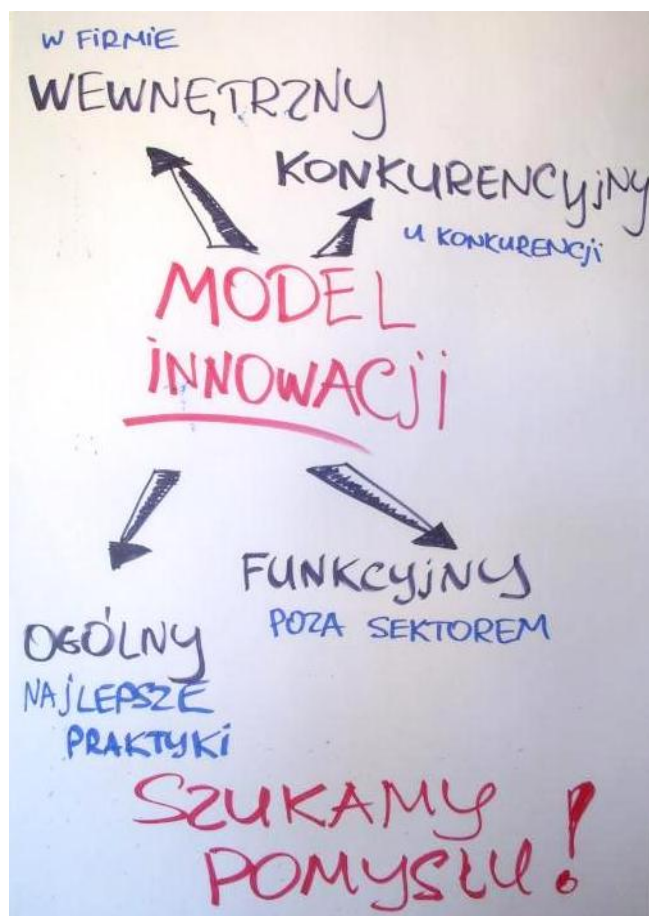 W FIRMIE
WEWNĘTRZNY
KONKURENCYJNY
U KONKURENCJI
MODEL
INNOWACJI
FUNKCYJNY
POZA SEKTOREM
OGÓLNY
NAJLEPSZE
PRAKTYKI
SZUKAMY
POMYSŁU!